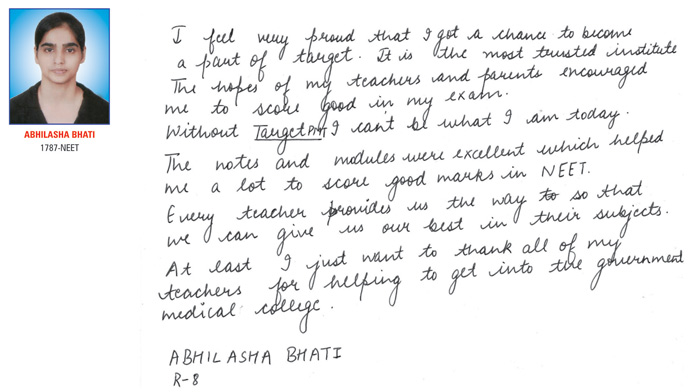 ABHILASHA BHATI
1787-NEET
I feel very proud that I got a chance to become
a part of target. It is the most trusted institute
The hopes of my teachers and parents encouraged
me to score good in my exam.
Without Target PMT I can't be what I am today.
The notes and modules were excellent which helped
me a lot to score good marks in NEET.
Every teacher provides us the way to so that
we can give us our best in their subjects.
At last I just want to thank all of my
teachers for helping to get into the government
medical college.
ABHILASHA BHATI
R-8